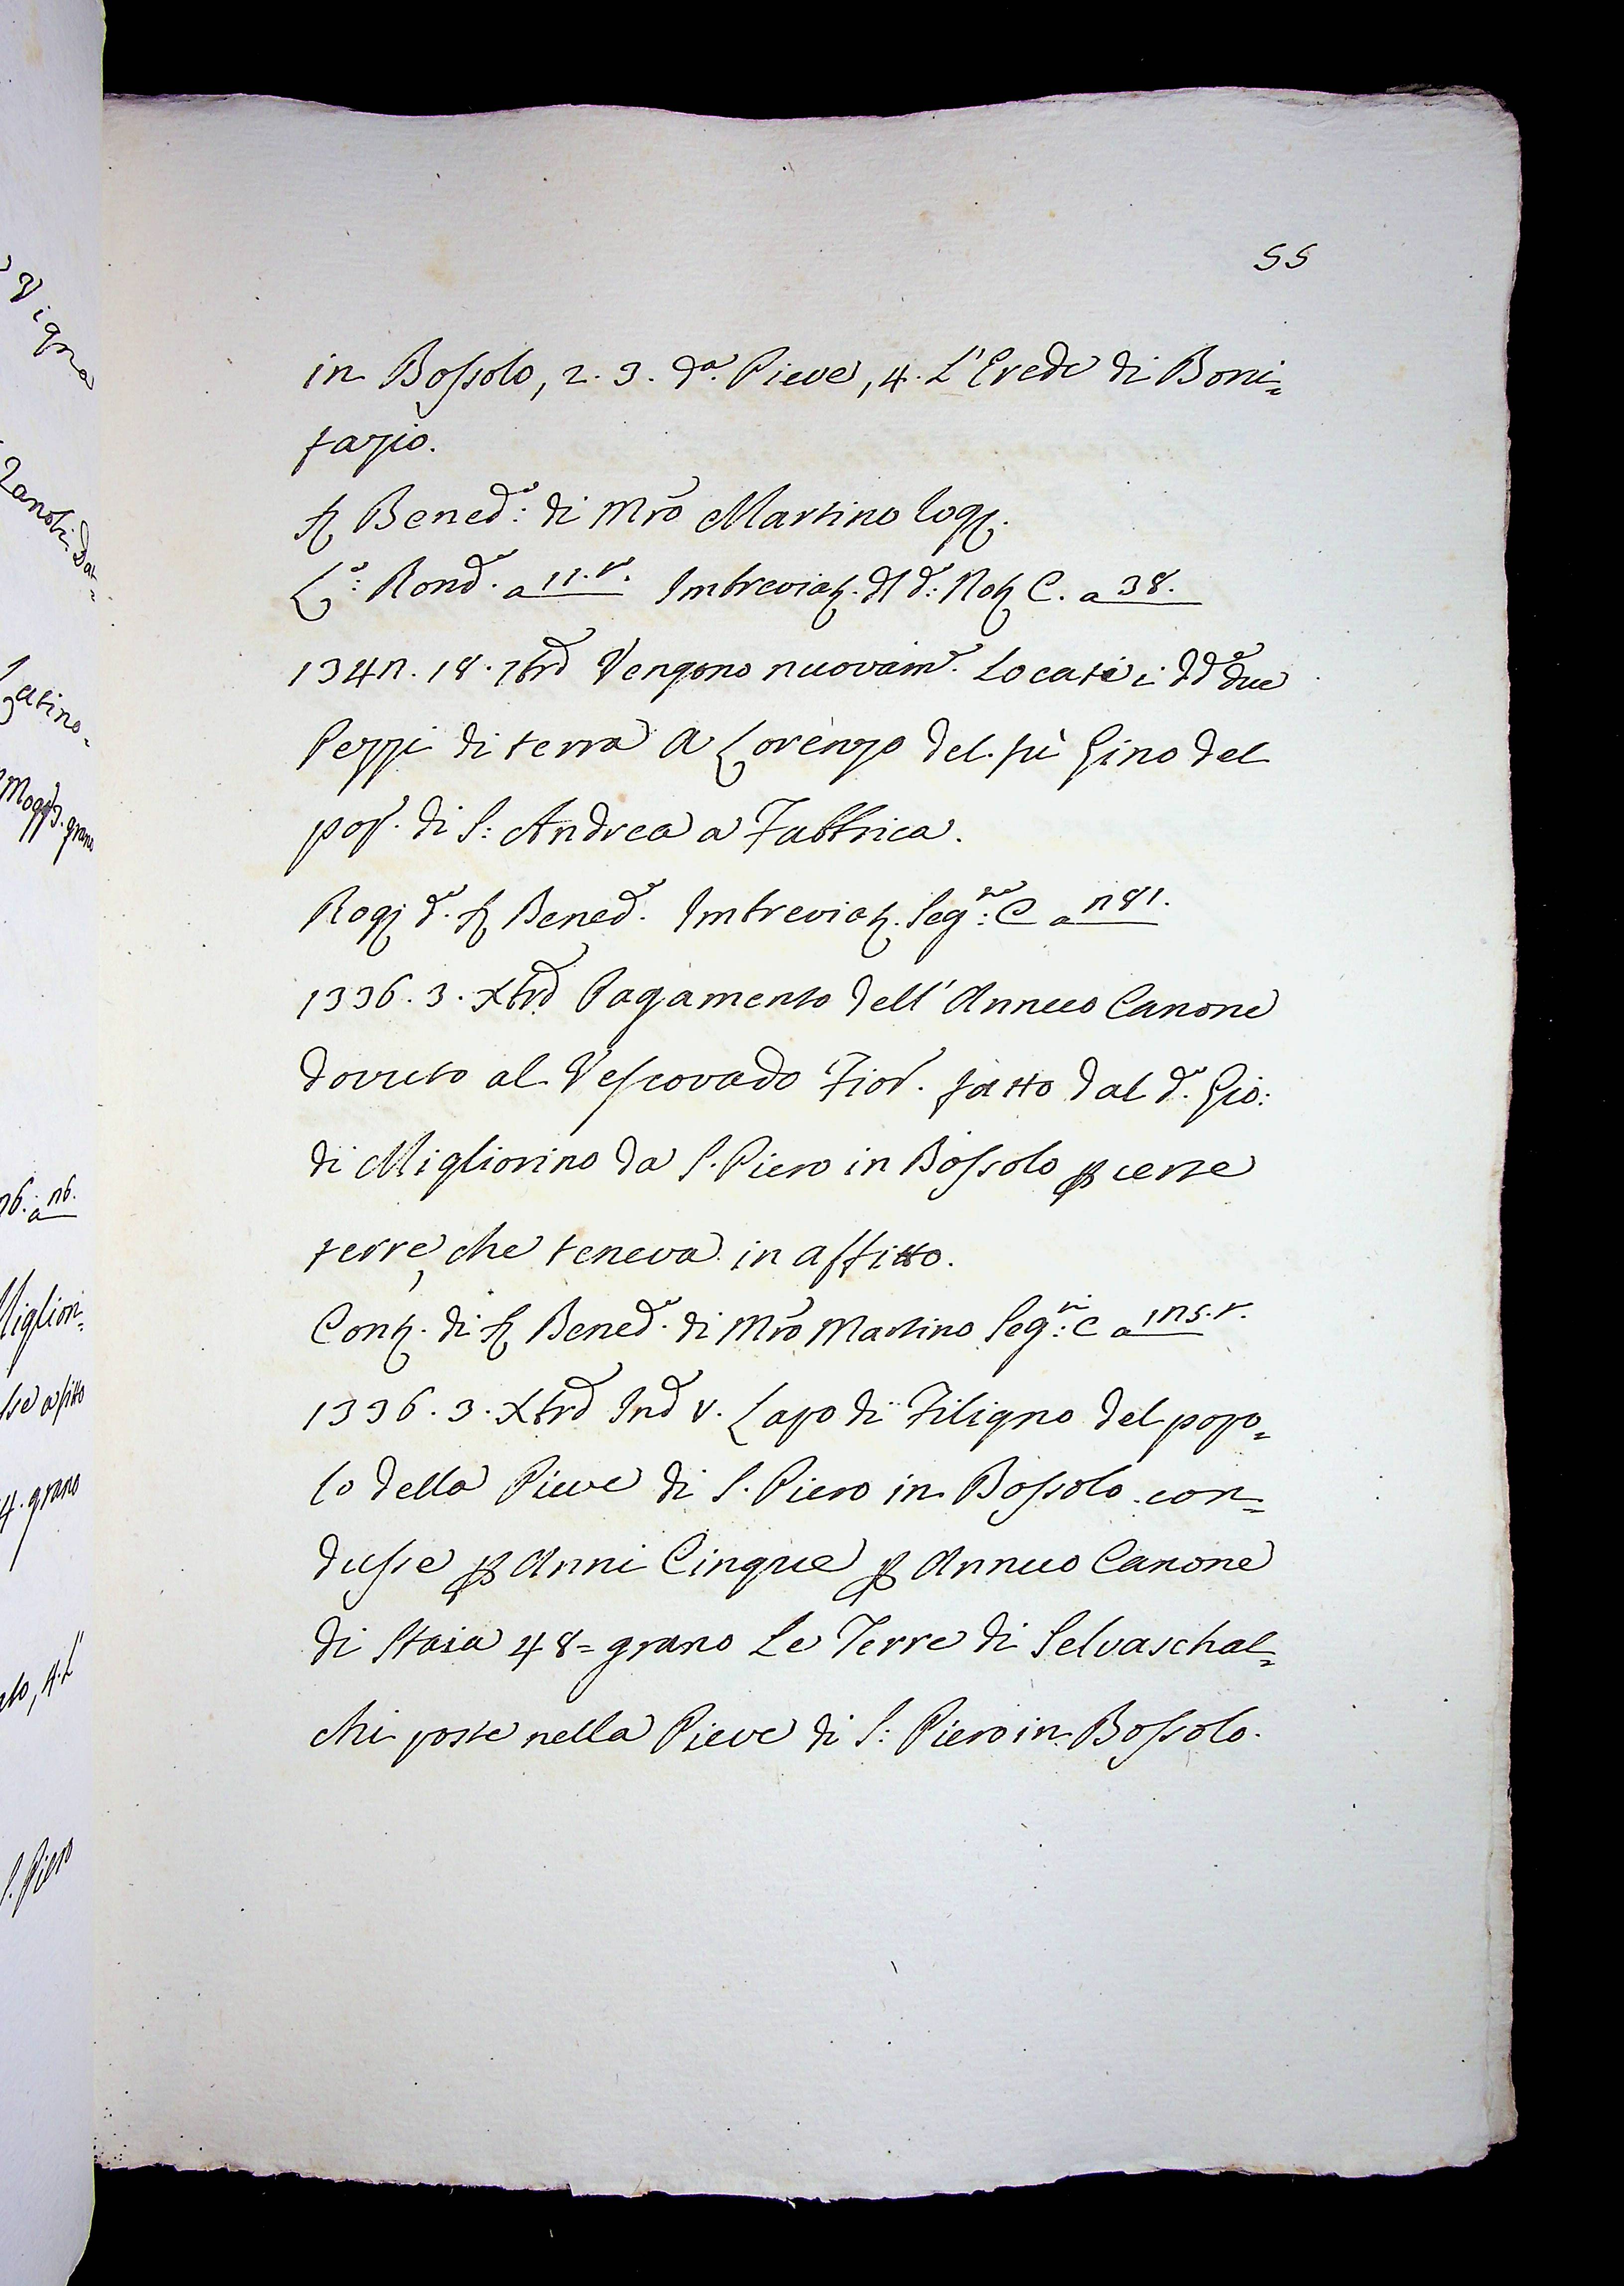 55
in Bossolo, 2. 3. da. Pieve, 4. L'Erede di Boni=
fazio.
Sr Bened.o: di Mro Martino Rog.
L.o: Rond.o a 11. v. Imbreviat. del d.o: Not. C. a 38.
1342. 18. 7bre Vengono nuovam.e Locati i dd.i due
Pezzi di terra a Lorenzo del fù Gino del
pop. di S: Andrea a Fabbrica.
Rog. d.o Sr Bened.o Imbreviat. Seg.te: C a 281.
1336. 3. Xbre Pagamento dell'Annuo Canone
dovuto al Vescovado Fior. fatto dal d.o Gio:
di Migliorino da S. Piero in Bossolo p certe
terre, che teneva in affitto.
Cont. di Sr Bened.o di Mro Martino Seg.ti: C a 125. v.
1336. 3. Xbre Ind V. Lapo di Filigno del popo=
lo della Pieve di S. Piero in Bossolo con=
dusse p Anni Cinque p Annuo Canone
di Staia 48= grano Le Terre di Selvaschal=
chi poste nella Pieve di S: Piero in Bossolo.
Vigna
Zanobi
4. grano
S. Piero